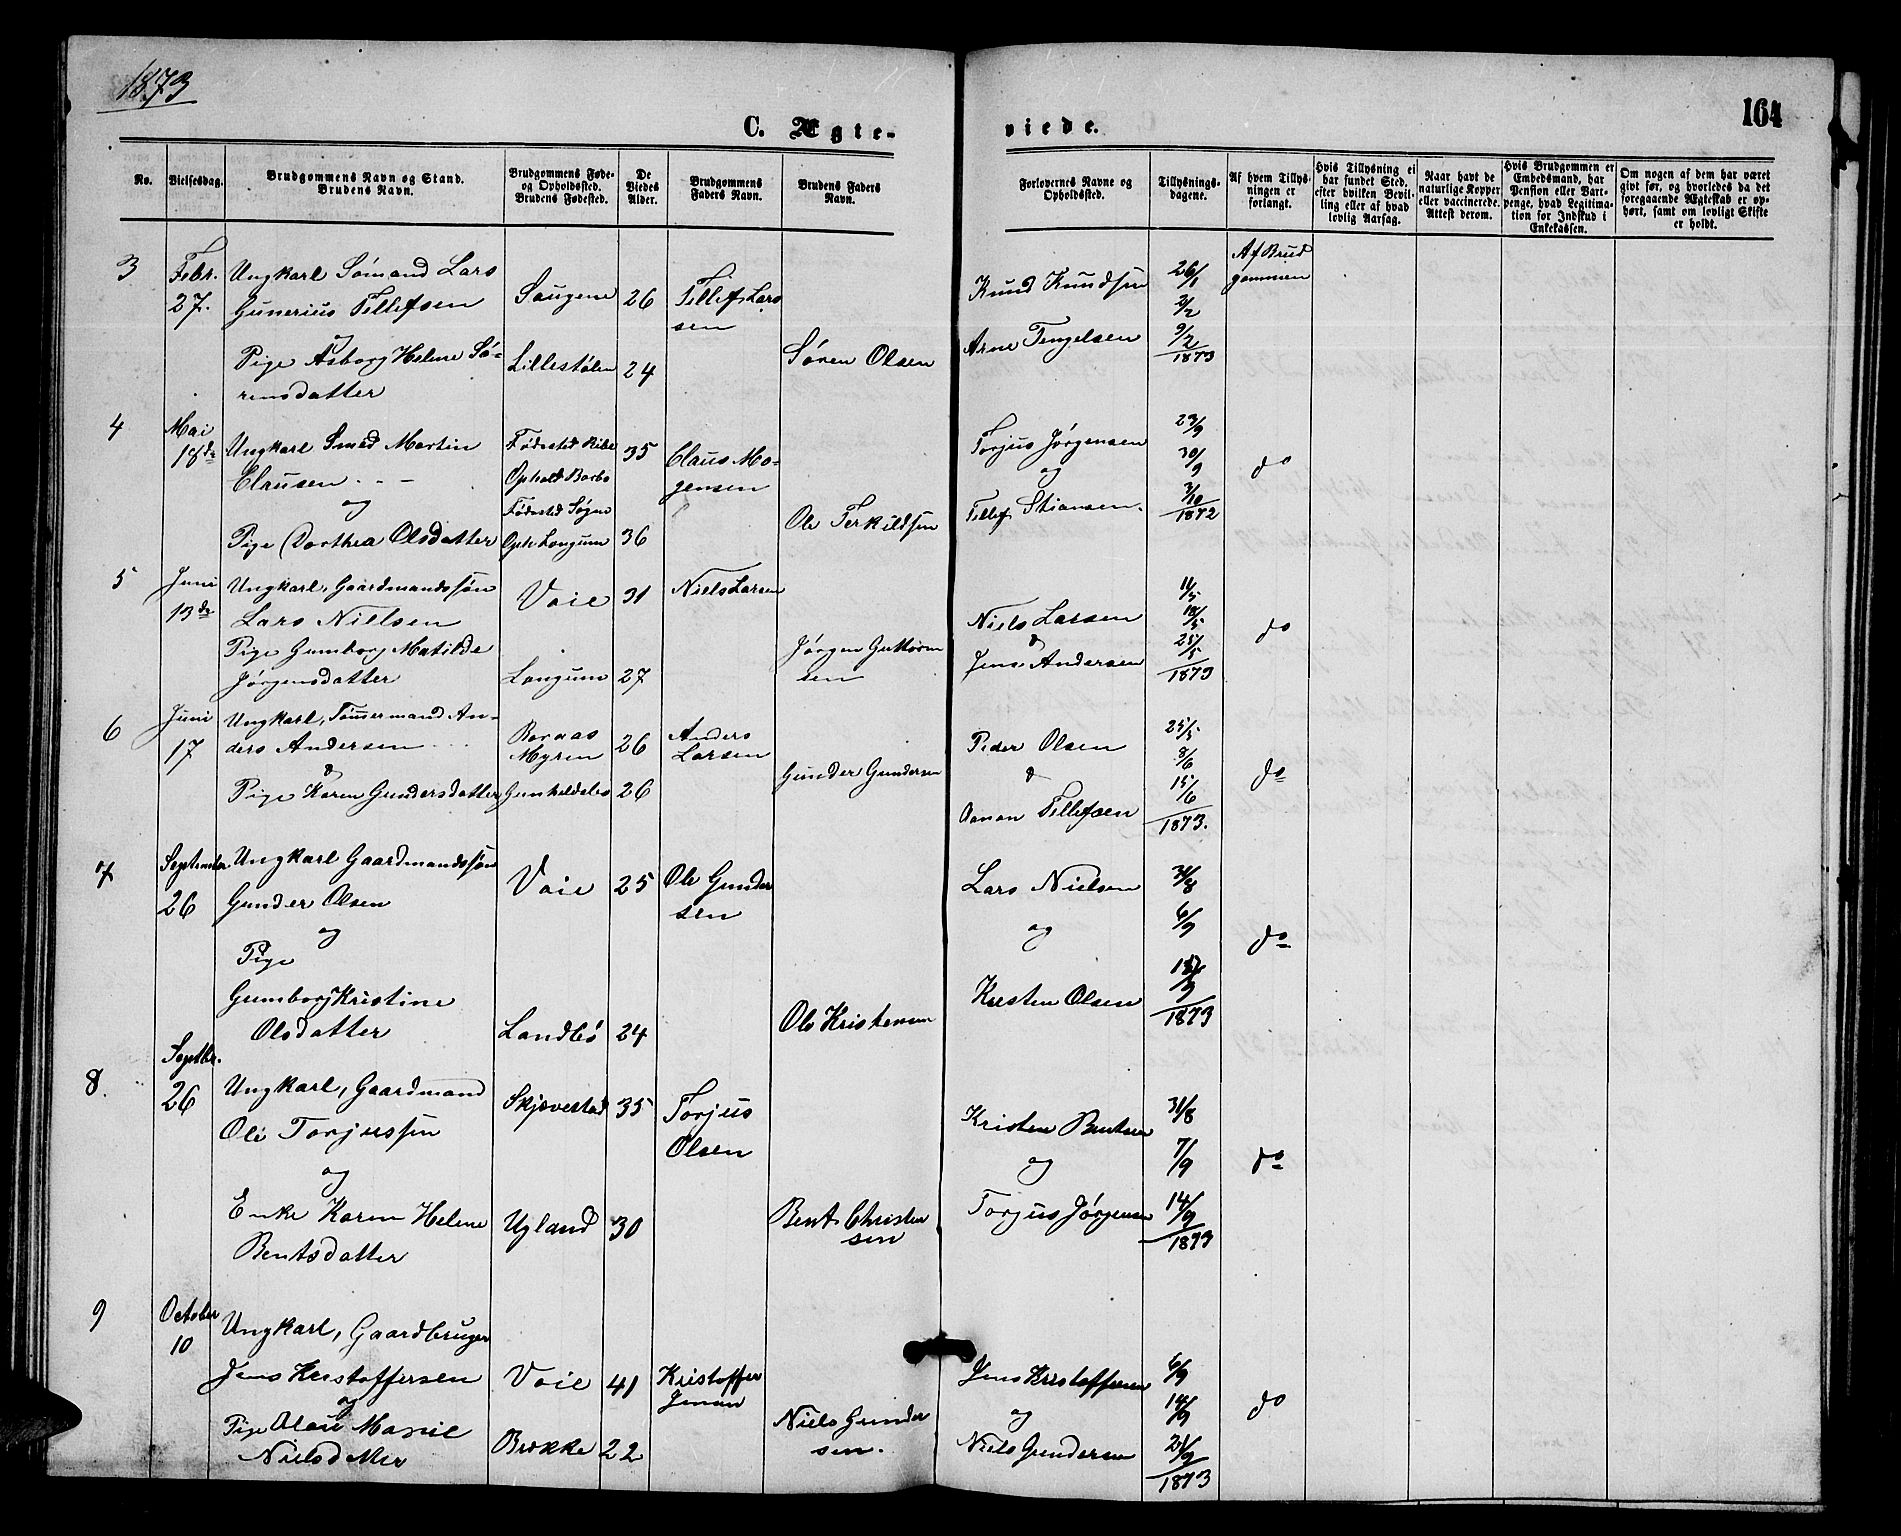 1873
164
C. Ægte-
viede.
No.
Vielsesdag.
Brudgommens Navn og Stand.
Brudens Navn.
Brudgommens Føde-
og Opholdssted.
Brudens Fødested.
De
Viedes
Alder.
Brudgommens
Faders Navn.
Brudens Faders
Navn.
Forlovernes Navne og
Opholdssted.
Tillysnings-
dagene.
Af hvem Tillys-
ningen er
forlangt.
Hvis Tillysning ei
har fundet Sted,
efter hvilken Bevil-
ling eller af hvad
lovlig Aarsag.
Naar havt de
naturlige Kopper
eller vaccinerede.
Attest derom.
Hvis Brudgommen er
Embedsmand, har
Pension eller Vart-
penge, hvad Legitima-
tion for Indskud i
Enkekassen.
Om nogen af dem har været
givt før, og hvorledes da det
foregaaende Ægteskab er op-
hørt, samt om lovligt Skifte
er holdt.
3
Febr.
27.
Ungkarl Sømand Lars
Gunerius Tellefsen
og
Pige Asborg Helene Sø-
rensdatter
Saugene
Lillestølen
26
24
Tellef Lars
sen
Søren Olsen
Knud Knudsen
Arne Tengelsen
26/1
2/2
9/2
1873
Af Brud
gommen
4
Mai
18de
Ungkarl Smed Martin
Clausen
og
Pige Dorthea Olsdatter
Fødested Ribe
Ophold Barbo
Fødested Søgne
Oph Longum
35
36
Claus Mo-
gensen
Ole Terkildsen
Torjus Jørgensen
og
Tellef Stiansen.
23/9
30/9
3/10
1872
do
5
Juni
13de
Ungkarl, Gaardmandssøn
Lars Nielsen
Pige Gumborg Matilde
Jørgensdatter
Voie
Longum
31
27
Niels Larsen
Jørgen Guttorm
sen
Niels Larsen
&
Jens Andersen
11/5
18/5
25/5
1873
do
6
Juni
17
Ungkarl, Tømmermand An-
ders Andersen
&
Pige Karen Gundersdatter
Boraas
Myren
26
26
Anders
Larsen
Gunder Gundersen
Peder Olsen
&
Tellefsen
25/5
8/6
15/6
1873.
do
7
September
26
Ungkarl Gaardmandssøn
Gunder Olsen
og
Pige
Gumborg Kristine
Olsdatter
Voie
Landbø
25
24
Ole Gunder
sen
Ole Kristensen
Lars Nielsen
og
Kristen Olsen
31/8
6/9
1873
do
8.
Septbr.
26
Ungkarl, Gaardmand
Ole Torjussen
og
Enke Karen Helene
Bentsdatter
Skjævestad
Ugland
35
30
Torjus
Olsen
Bent Christen
sen
Kristen Bentsen
og
Torjus Jørgensen
31/8
7/9
14/9
1873
do
9
October
10
Ungkarl, Gaardbruger
Jens Kristoffersen
og
Pige Marie
Nielsdatter
Voie
Brække
41
22
Kristoffer
Jensen
Niels Gunder
sen.
Jens Kristoffersen
og
Niels Gundersen
6/9
14/9
21/9
1873
do